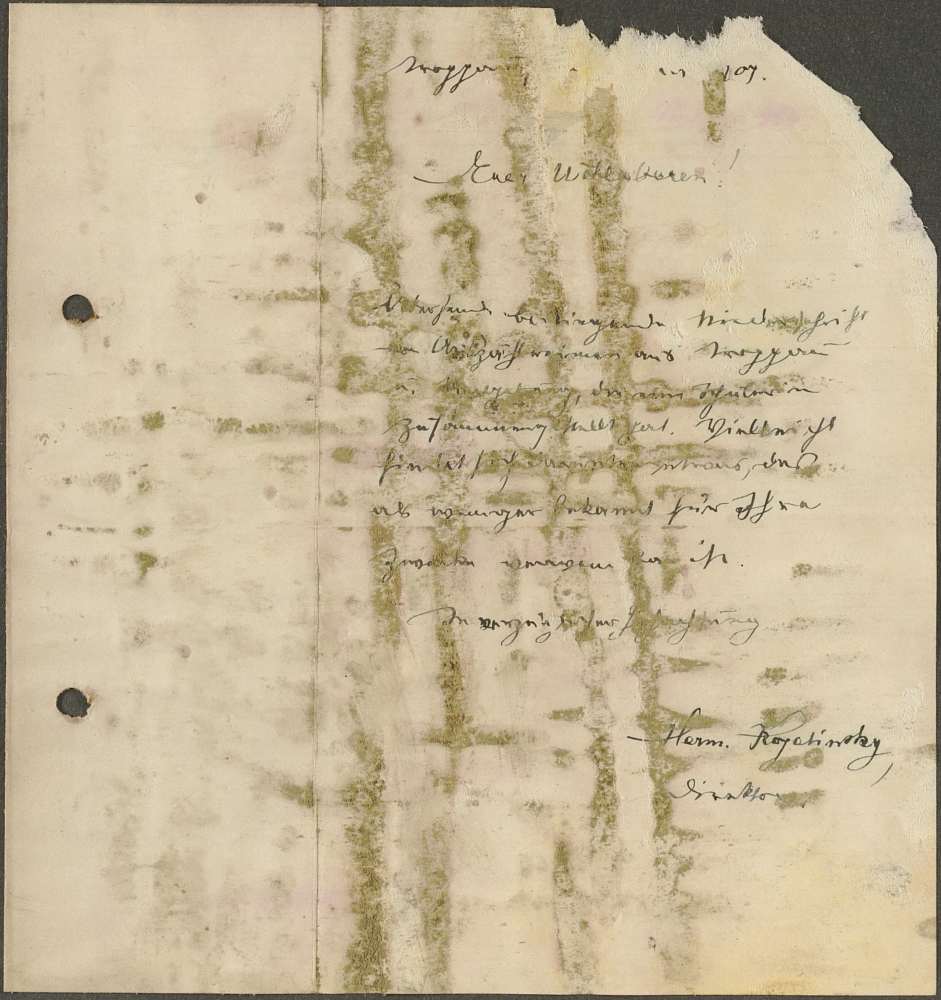 Troppau, 107.
Euer Wohlgeboren!
Übersende beiliegende Niederschrift
von Auszählreimen aus Troppau
u. Umgebung, die eine Schülerin
zusammengestellt hat. Vielleicht
findet sich darunter etwas, das
als weniger bekannt für Ihre
Zwecke verwendbar ist.
In vorzüglicher Hochachtung
Herm.
Direktor